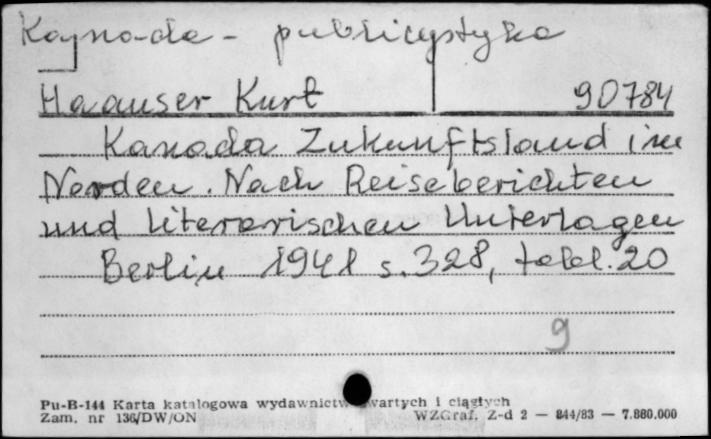 Kanada - publicystyka
Haauser Kurt 90784
Kanada Zukunftsland im
Norden. Nach Reiseberichten
und literarischen Unterlagen
Berlin 1941 s. 328, tabl. 20
9
Pu-B-144 Karta katalogowa wydawnictw zwartych i ciągłych
Zam. nr 136/DW/ON WZGraf. Z-d 2 — 844/83 — 7.880.000